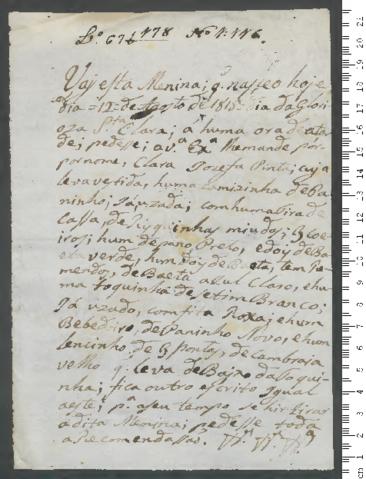 Lo 676 478 No 4.446.
Vaj esta Menina; q. nasseo hoje
dia =12= de Agosto de 1815 dia da Glori
oza Sta. Clara; a huma ora da tar
de; pedese; a v. Exa. lhe mande por
por nome, Clara Jozefa Pinta; cuja
leva vestida, huma Camizinha de Ba
ninho; Já uzada; com huma tira de
Cassa, de Risquinhas miudos; 3 Coe
iros; hum de pano Preto, e dois de Ba
eta verde, hum
de Baeta azul Claro, e hu
ma toquinha de Setim Branco;
Já uzado, com fita Roxa; e hum
Bebedeiro, de Paninho Novo, e hum
lencinho de 3 Pontas, de Cambraia
velho q. leva de Bajxo da toqui
nha; fica outro escrito Igual
a este; pa. a seu tempo se hir tirar
a dita Menina; pedesse toda
a Recomendassão.